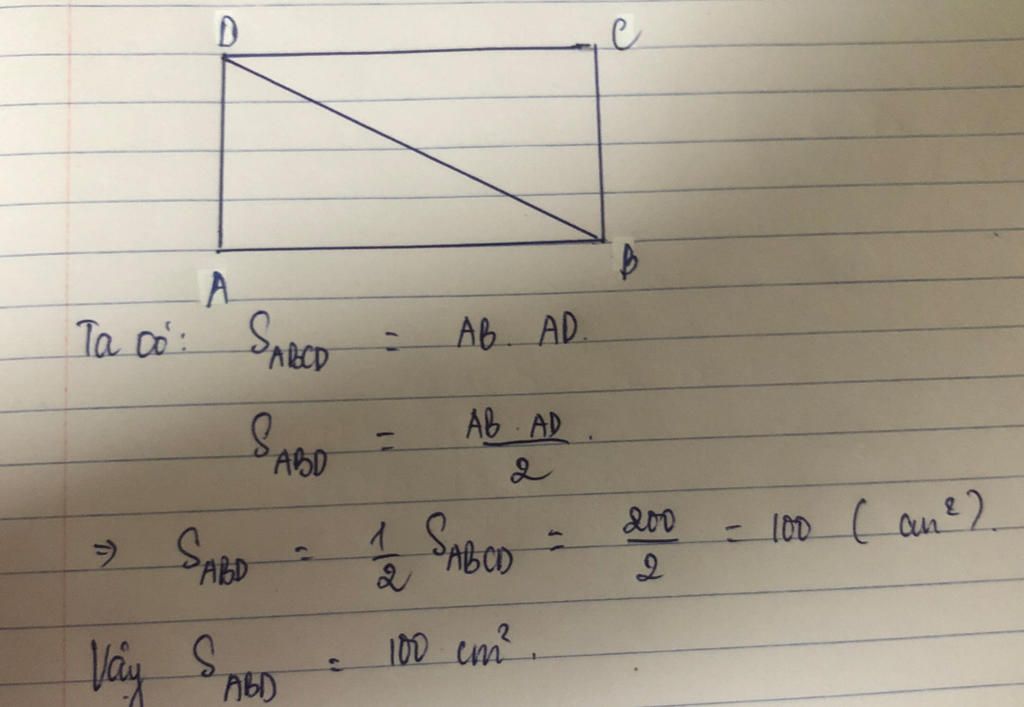 D C
A B
Ta có: S_ABCD = AB . AD.
S_ABD = AB . AD / 2 .
⇒ S_ABD = 1/2 S_ABCD = 200/2 = 100 (cm²).
Vậy S_ABD = 100 cm².